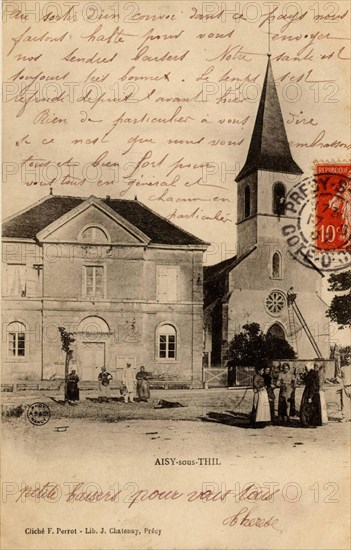 Au sortir d'un convoi dans ce pays nous
faisons halte pour vous envoyer
nos tendres baisers Notre santé est
toujours pas bonnet. Le temps s'est
refroidi depuis l'avant hier
Rien de particulier à vous dire
si ce n'est que nous vous embrassons
tous et bien fort pour
vous tous en général et chacun en
particulier
PRÉCY-S
CÔTE-D'
RÉPUBLIQUE FRANÇAISE
POSTES
10 c
AISY-sous-THIL
petits baisers pour vous tous
Thérèse
Cliché F. Perrot - Lib. J. Chatenay, Précy
PHOTO12